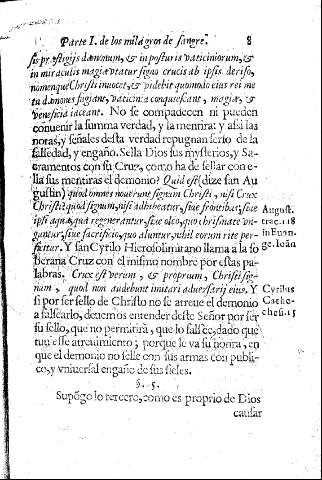 Parte I. de los milagros de sangre. 8
sis præstigijs dæmonum, & in posturis vaticiniorum, &
in miraculis magiæ vtatur signo crucis ab ipsis deriso,
nomenque Christi inuocet, & videbit quomodo eius rei me
tu dæmones fugiant, vaticinia conquiescant, magiæ, &
veneficia iaceant. No se compadecen ni pueden
conuenir la summa verdad, y la mentira: y assi las
notas, y señales desta verdad repugnan serlo de la
falsedad, y engaño. Sella Dios sus mysterios, y Sa-
cramentos con su Cruz, como ha de sellar con e-
lla sus mentiras el demonio? Quid est (dize san Au
gustin) quod omnes nouerunt signum Christi, nisi Crux
Christi: quod signum, nisi adhibeatur, siue frontibus, siue
ipsi aquæ, qua regenerantur, siue oleo, quo chrismate vn-
gantur, siue sacrificio, quo aluntur, nihil eorum rite per-
ficitur. Y san Cyrilo Hierosolimitano llama a la so
berana Cruz con el mismo nombre por estas pa-
labras. Crux est verum, & proprum, Christi sig-
num, quod non audebunt imitari aduersarij eius. Y
si por ser sello de Christo no se atreue el demonio
a falsearlo, deuemos entender deste Señor por ser
su sello, que no permitirà, que lo falsee, dado que
tuuiesse atreuimiento; porque le va su honra, en
que el demonio no selle con sus armas con publi-
co, y vniuersal engaño de sus fieles.
August.
trac. 118
in Euan-
ge. Ioãn
Cyrilus
Cathe-
chesi. 15
§. 5.
Supõgo lo tercero, como es proprio de Dios
causar